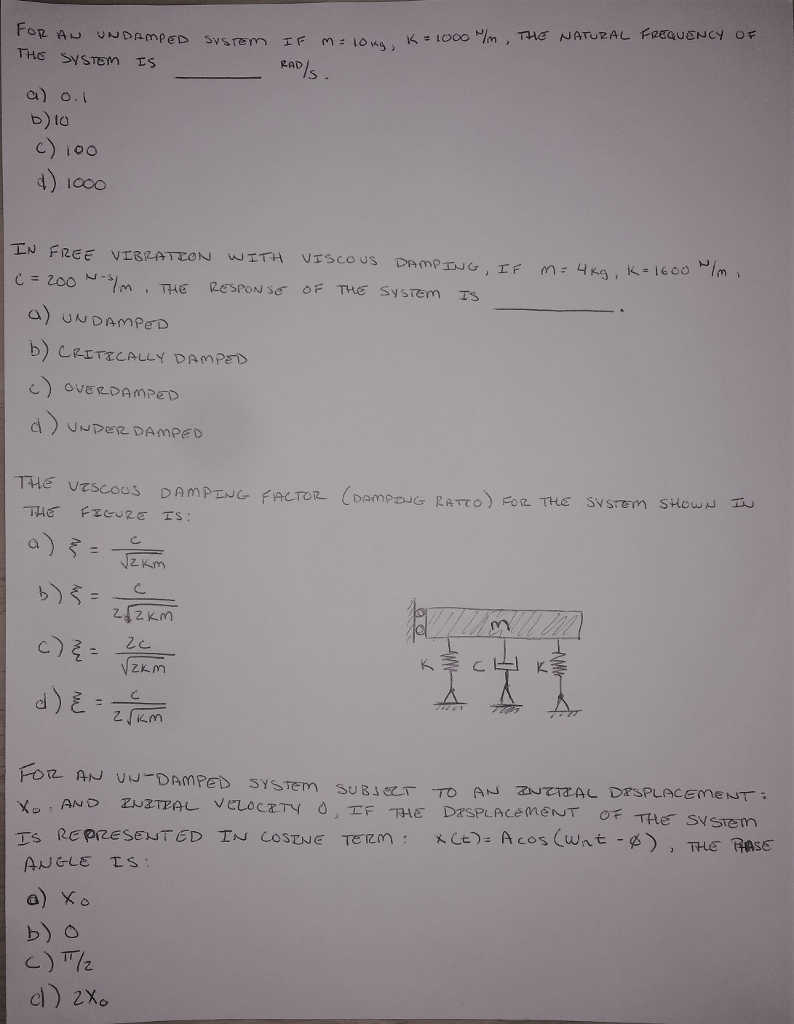 FOR AN UNDAMPED SYSTEM IF m = 10 kg, K = 1000 N/m, THE NATURAL FREQUENCY OF
THE SYSTEM IS ________ RAD/S.
a) 0.1
b) 10
c) 100
d) 1000
IN FREE VIBRATION WITH VISCOUS DAMPING, IF m = 4 kg, K = 1600 N/m,
C = 200 N-s/m, THE RESPONSE OF THE SYSTEM IS ________.
a) UNDAMPED
b) CRITICALLY DAMPED
c) OVERDAMPED
d) UNDERDAMPED
THE VISCOUS DAMPING FACTOR (DAMPING RATIO) FOR THE SYSTEM SHOWN IN
THE FIGURE IS:
a) ξ = c/√2Km
b) ξ = c/2√2Km
c) ξ = 2c/√2Km
d) ξ = c/2√Km
m
K C K
FOR AN UN-DAMPED SYSTEM SUBJECT TO AN INITIAL DISPLACEMENT:
X₀, AND INITIAL VELOCITY 0, IF THE DISPLACEMENT OF THE SYSTEM
IS REPRESENTED IN COSINE TERM: x(t) = A cos(Wnt - ø), THE PHASE
ANGLE IS:
a) X₀
b) 0
c) π/2
d) 2X₀